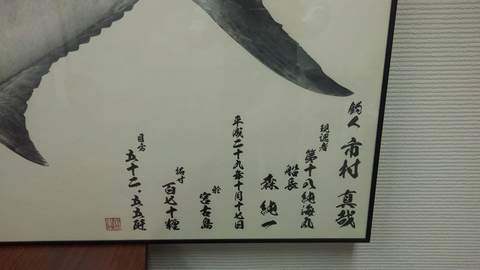 釣人 市村 真哉
現認者
第十八純海丸
船長
森 純一
平成二十九年十月十七日
於
宮古島
拓寸
百七十糎
目方
五十二・五五瓩